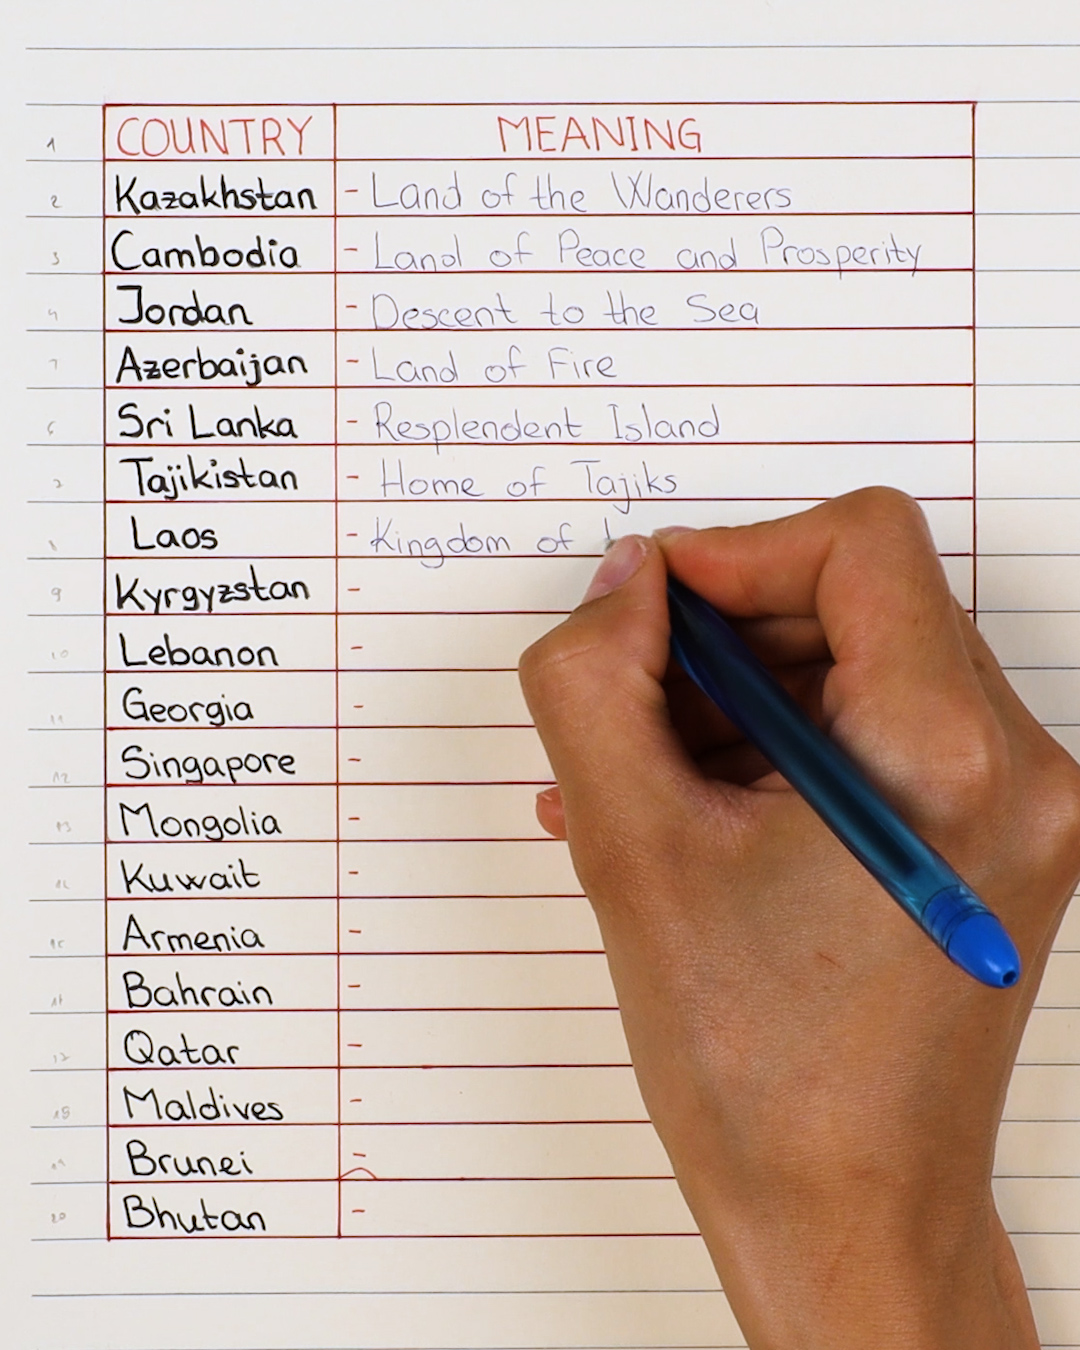 1 COUNTRY MEANING
2 Kazakhstan - Land of the Wanderers
3 Cambodia - Land of Peace and Prosperity
4 Jordan - Descent to the Sea
Azerbaijan - Land of Fire
6 Sri Lanka - Resplendent Island
Tajikistan - Home of Tajiks
8 Laos - Kingdom of
9 Kyrgyzstan -
10 Lebanon -
11 Georgia -
12 Singapore -
13 Mongolia -
Kuwait -
Armenia -
Bahrain -
Qatar -
18 Maldives -
19 Brunei -
20 Bhutan -